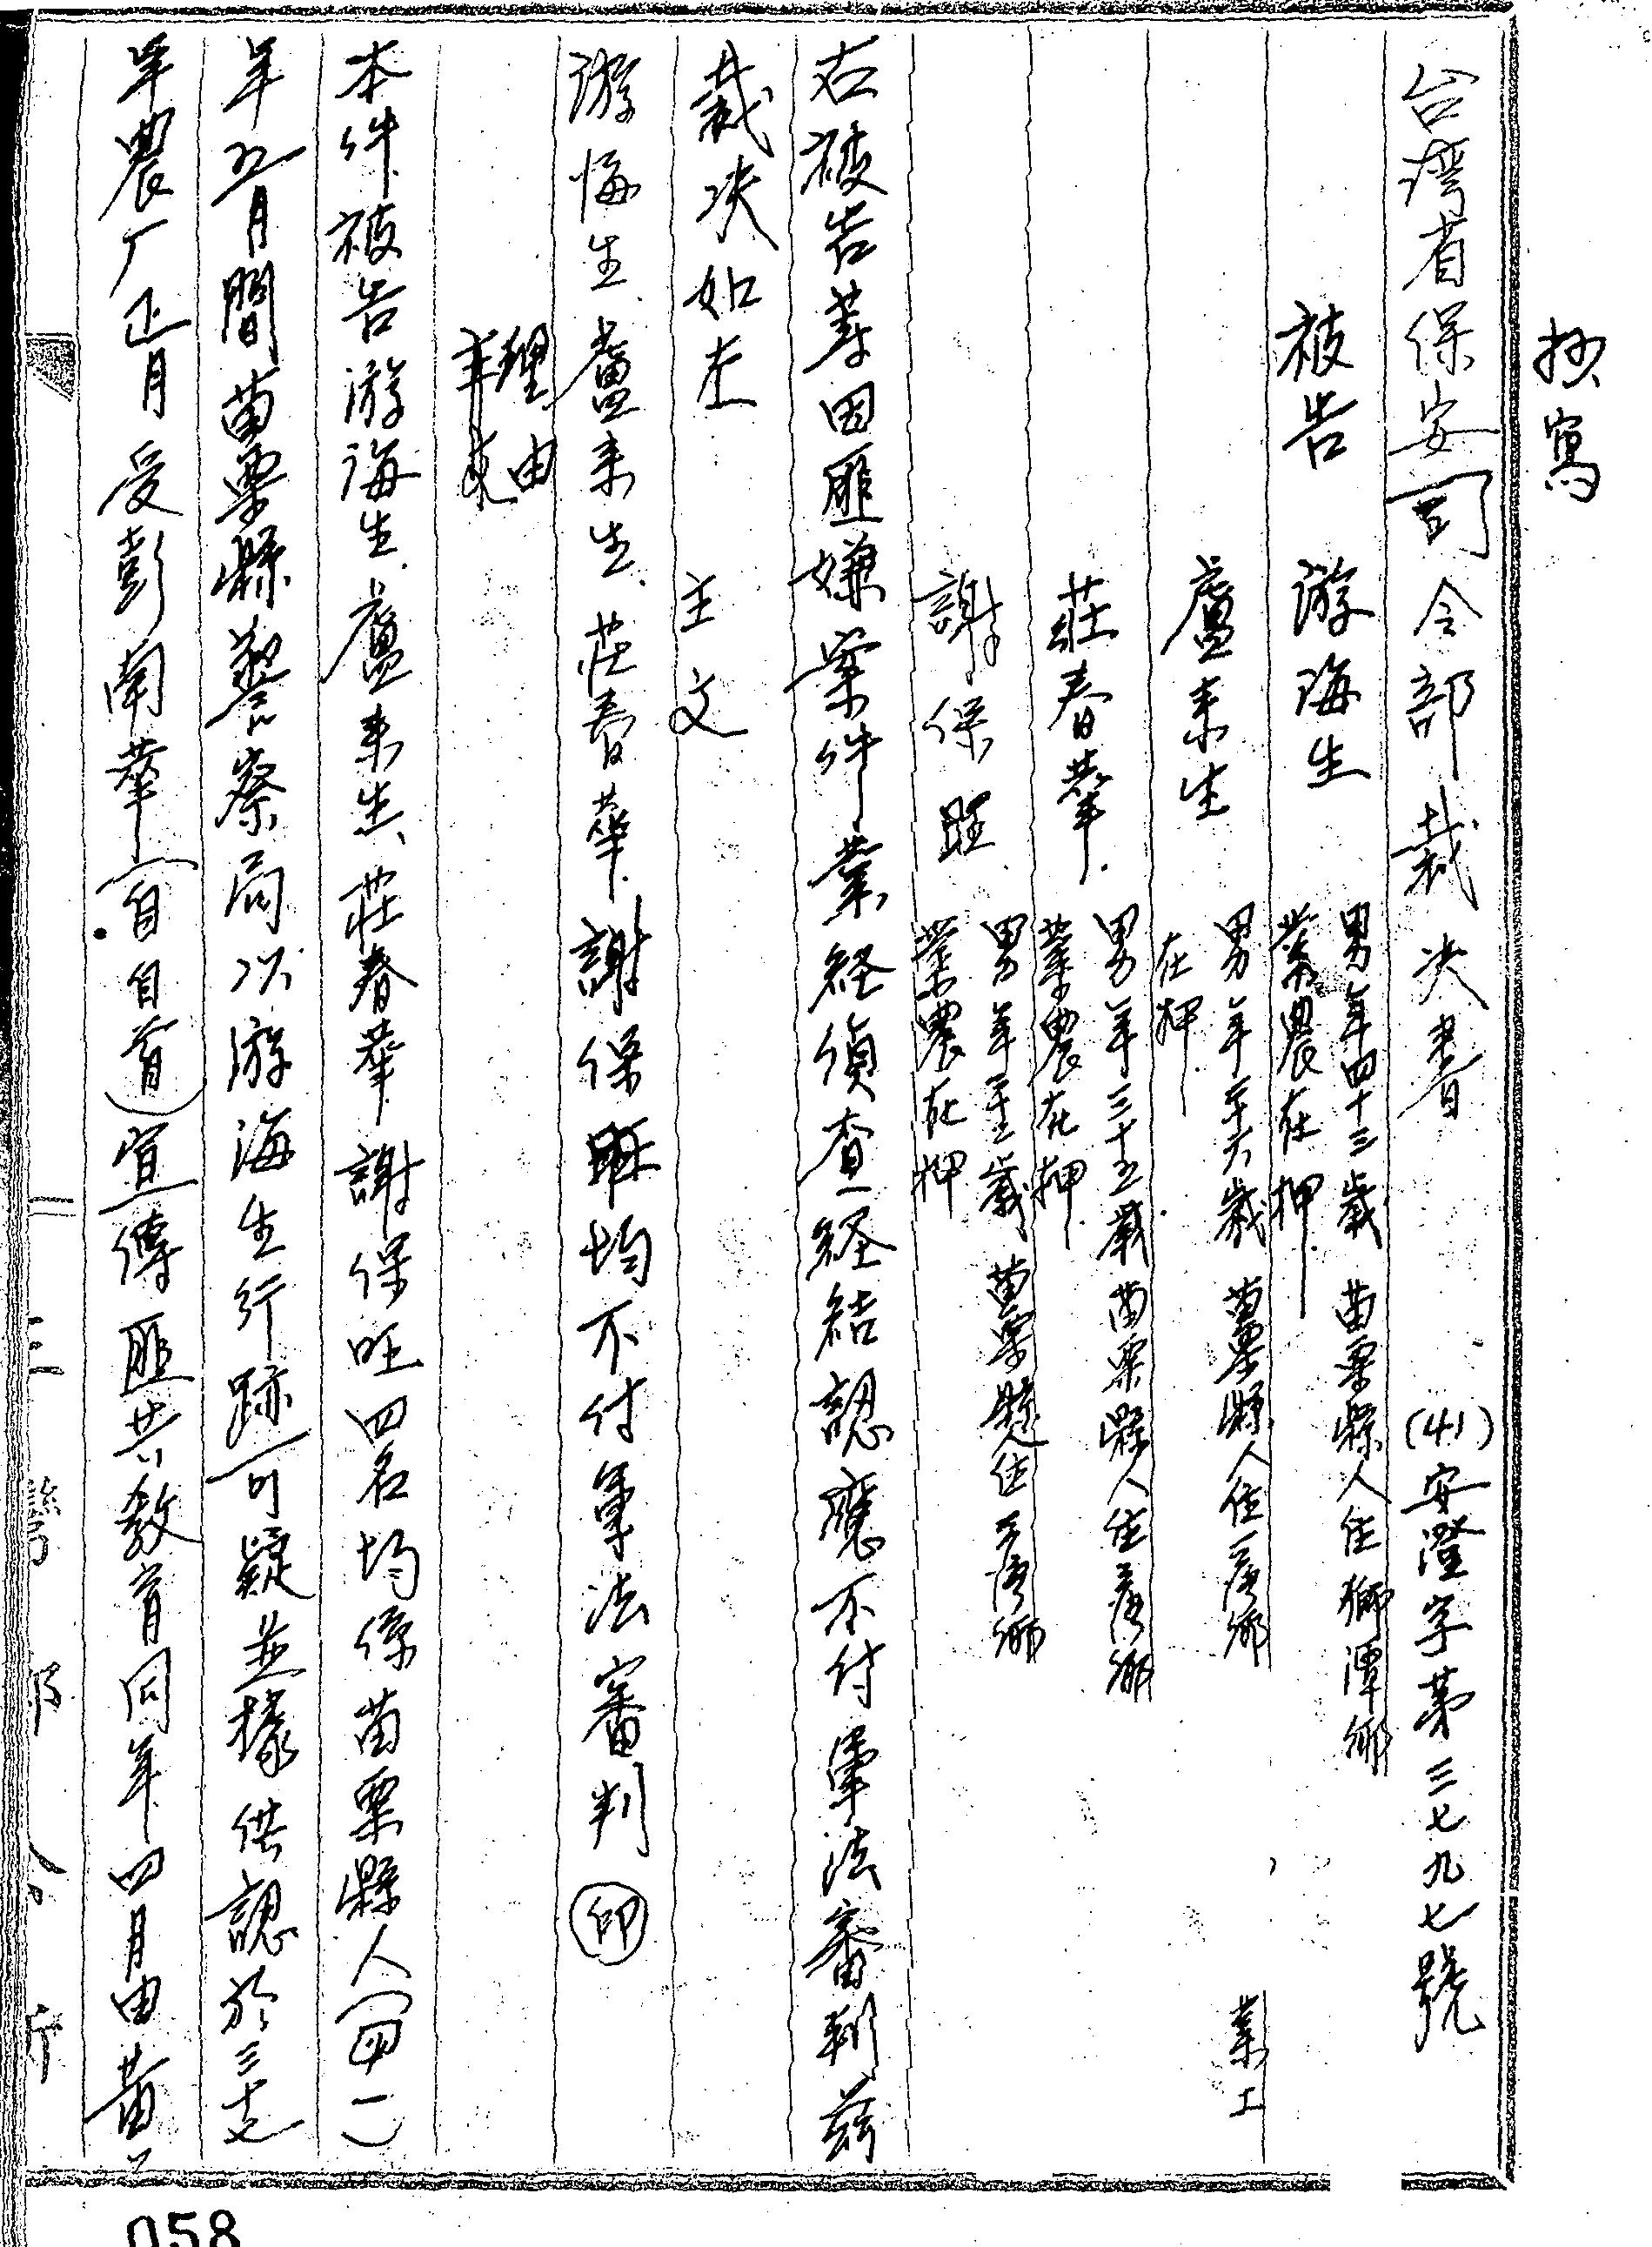 抄寫
台湾省保安司令部裁决書 (41)安澄字第三七九七號
被告 游海生 男年四十三歲 苗栗縣人住獅潭鄉
業農在押
盧来生 男年二十六歲 苗栗縣人住三湾鄉 業工
在押
莊春華 男年三十五歲 苗栗縣人住三湾鄉
業農在押
謝保旺 男年 歲 苗栗縣人住三湾鄉
業農在押
右被告等因匪嫌案件業経偵查経結認應不付軍法審判茲
裁决如左
主文
游海生、盧来生、莊春華、謝保旺均不付軍法審判 印
理由
本件被告游海生、盧来生、莊春華、謝保旺四名均係苗栗縣人(四一)
年五月間苗栗縣警察局以游海生行跡可疑並據供認於三七
年農厂正月受彭南華(自首)宣傳匪共教育同年四月由黃
058